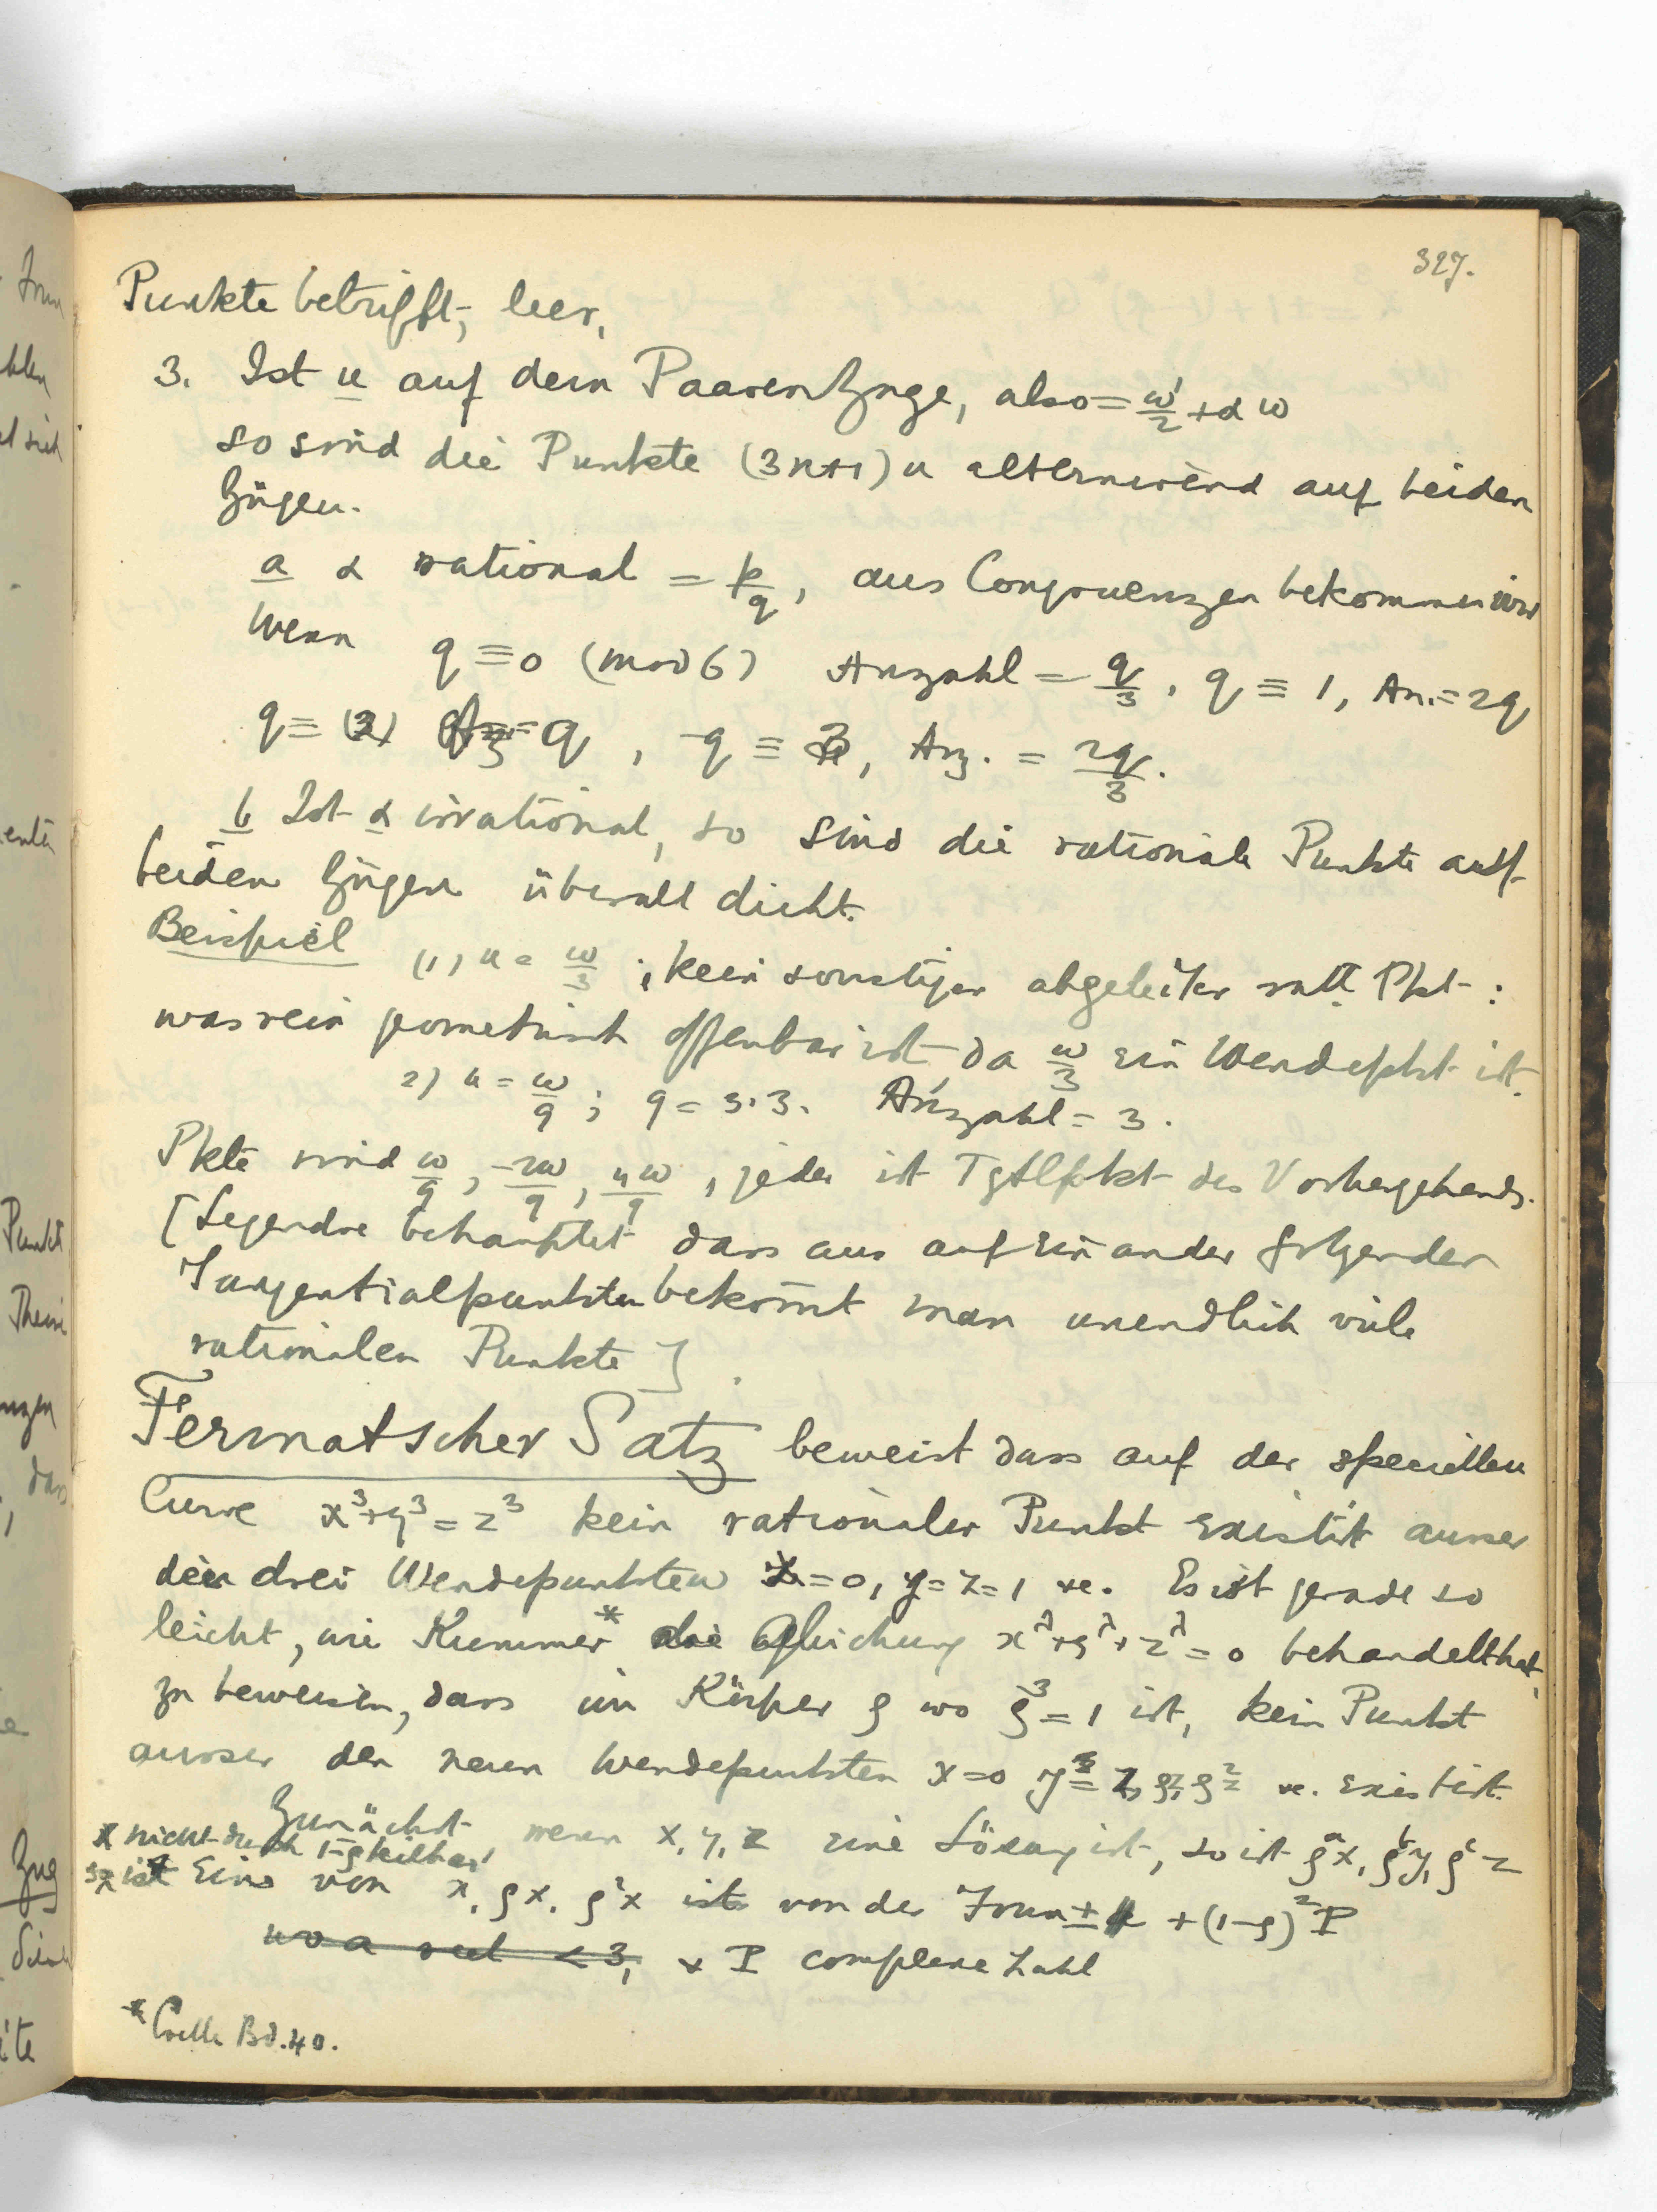 327.
Punkte betrifft, leer.
3. Ist u auf dem Paarenzuge, also = ω'/2 + α ω
so sind die Punkte (3n+1)u alternirend auf beiden
Zügen.
a α rational = p/q, aus Congruenzen bekommen wir
wenn q ≡ 0 (mod 6) Anzahl = q/3, q ≡ 1, An. = 2q
q ≡ (2) q, q ≡ 3, Anz. = 2q/3.
b Ist α irrational, so sind die rationale Punkte auf
beiden Zügen überall dicht.
Beispiel (1) u = ω/3; kein sonstiger abgeleiter ratl. Pkt:
was rein geometrisch offenbar ist da ω/3 ein Wendepkt ist.
2) u = ω/9; 9 = 3.3. Anzahl = 3.
Pkte sind ω/9, -2ω/9, 4ω/9, jeder ist Tgtlpkt des Vorhergehends.
[Legendre behauptet dass aus auf einander folgender
Tangentialpunkten bekommt man unendlich viele
rationalen Punkte].
Fermatscher Satz beweist dass auf der speciellen
Curve x³+y³=z³ kein rationaler Punkt existirt ausser
den drei Wendepunkten x=0, y=z=1 etc. Es ist gerade so
leicht, wie Kummer* die Gleichung x^λ+y^λ+z^λ=0 behandelt hat,
zu beweisen, dass im Körper ρ wo ρ³=1 ist, kein Punkt
ausser den neun Wendepunkten x=0 y = z, ρz, ρ²z etc. existirt.
Zunächst wenn x, y, z eine Lösung ist, so ist ρᵃx, ρᵇy, ρᶜz
x nicht durch 1-ρ teilbar,
so ist Eins von x, ρx, ρ²x ist von der Form ± 1 + (1-ρ)²P
wo a reel < 3, & P complexe Zahl
* Crelle Bd. 40.